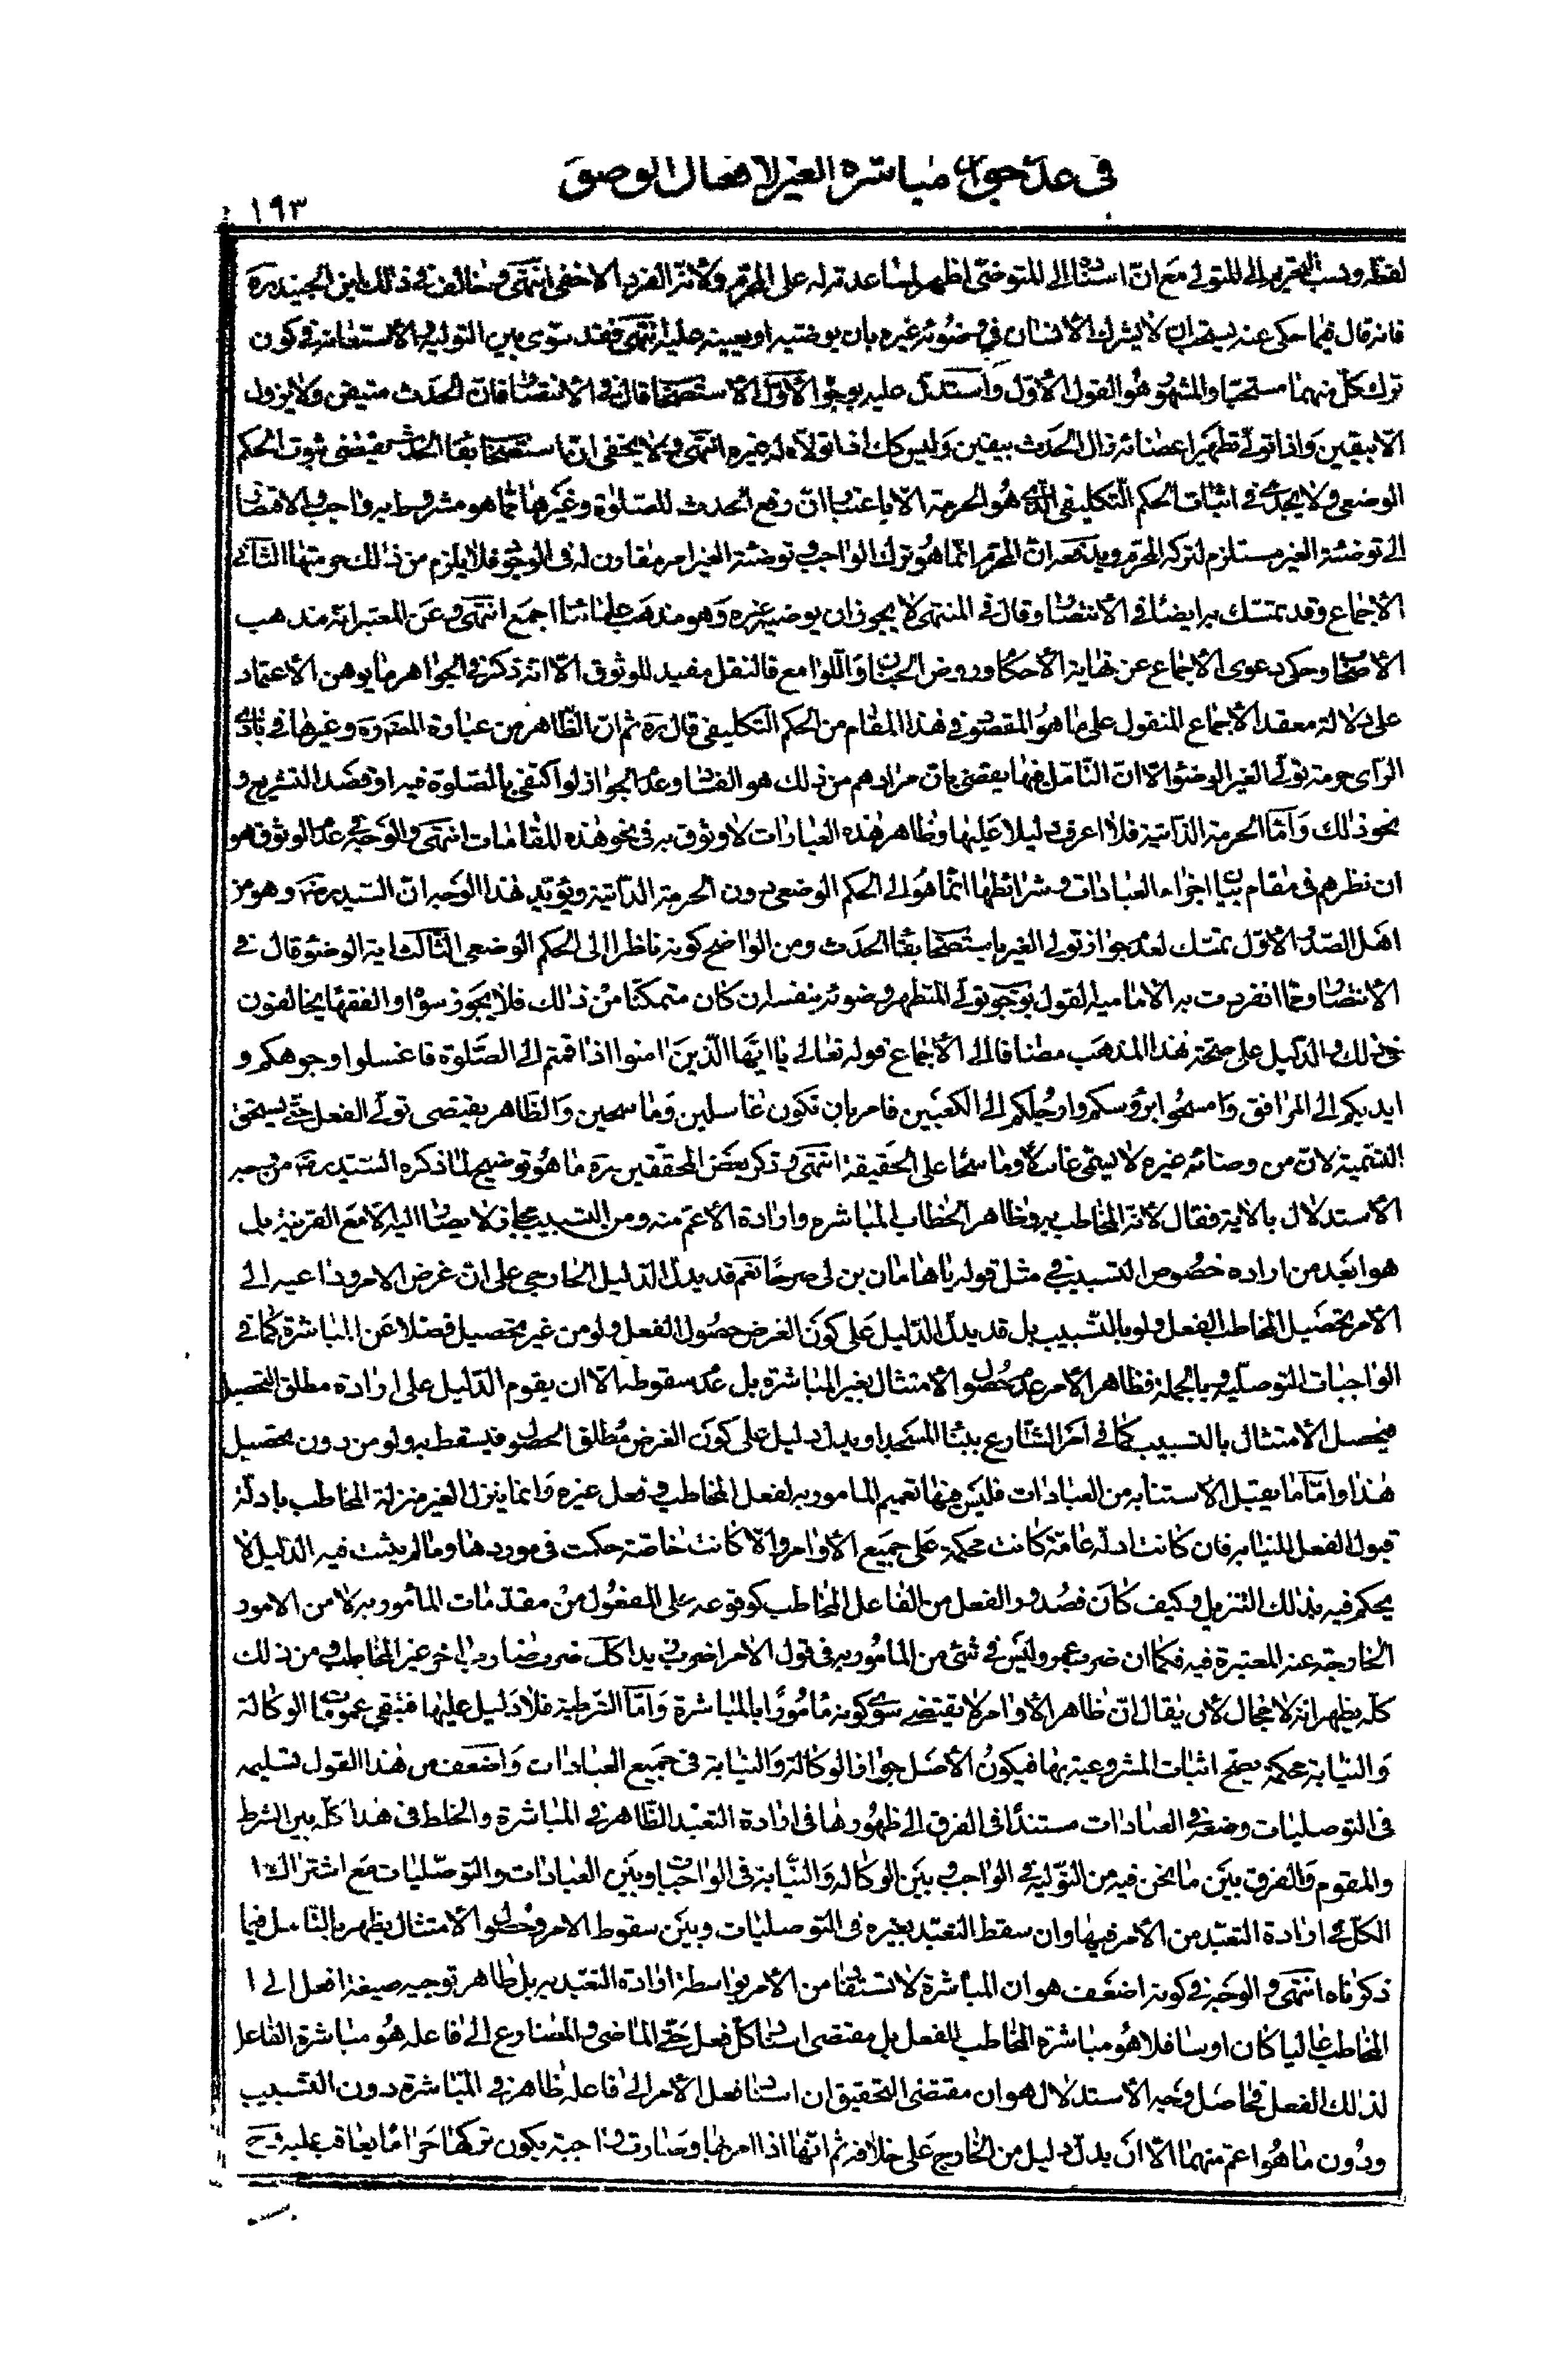 في عدم جواز مباشرة الغير لافعال الوضوء
١٩٣
لفظه ونسب التحريم الى المتولى مع انّ اسناده الى المتوضئ اظهر لمساعدته له على المحرم ولانّه الفرد الاخفى انتهى وخالف في ذلك ابن الجنيد ره
فانه قال فيما حكى عنه يستحب ان لا يشرك الانسان في وضوئه غيره بان يوضئيه او يعينه عليه انتهى فقد سوّى بين التولية والاستعانة في كون
ترك كلّ منهما مستحبا والمشهور هو القول الاوّل واستدلّ عليه بوجوه الاوّل الاستصحاب قال في الانتصار فانّ الحدث متيقن ولا يزول
الّا بيقين واذا تولّى تطهير اعضائه زال الحدث بيقين وليس كك اذا تولّاه له غيره انتهى ولا يخفى انّ استصحاب بقاء الحدث يقتضى ثبوت الحكم
الوضعى ولا يجدى في اثبات الحكم التكليفى الّذى هو الحرمة الّا باعتبار انّ رفع الحدث للصّلوة وغيرها ممّا هو مشروط به واجب والاقتضاء
الى توضئة الغير مستلزم لتركه المحرّم ويدفعه انّ المحرّم انّما هو ترك الواجب وتوضئة الغير امر مقارن له في الوجود فلا يلزم من ذلك حرمتها الثّانى
الاجماع وقد تمسّك به ايضا في الانتصار وقال في المنتهى لا يجوز ان يوضيه غيره وهو مذهب علمائنا اجمع انتهى وعن المعتبر انّه مذهب
الاصحاب وحكى دعوى الاجماع عن نهاية الاحكام وروض الجنان واللّوامع فالنقل مفيد للوثوق الّا انّه ذكر في الجواهر ما يوهن الاعتماد
على دلالة معقد الاجماع المنقول على ما هو المقصود في هذا المقام من الحكم التكليفى قال ره ثم انّ الظّاهر من عبارة المصنّف ره وغيرها في بادى
الرّاى حرمة تولّى الغير الوضوء الّا انّ التامّل فيها يقضى بان مرادهم من ذلك هو الفساد وعدم الجواز لو اكتفى بالصّلوة فيه او قصد التشريع و
نحو ذلك وامّا الحرمة الذاتية فلا اعرف دليلا عليها وظاهر هذه العبارات لا وثوق به في نحو هذه المقامات انتهى والوجه في عدم الوثوق هو
ان نظرهم في مقام بيان اجزاء العبادات وشرائطها انّما هو الى الحكم الوضعى دون الحرمة الذاتية ويؤيّد هذا الوجه انّ السّيد رض وهو من
اهل الصّدر الاوّل تمسّك لعدم جواز تولى الغير باستصحاب بقاء الحدث ومن الواضح كونه ناظرا الى الحكم الوضعى الثّالث اية الوضوء قال في
الانتصار وممّا انفردت به الامامية القول بوجوب تولّى المتطهر وضوئه بنفسه ان كان متمكّنا من ذلك فلا يجوز سواه والفقهاء يخالفون
في ذلك والدّليل على صحّة هذا المذهب مضافا الى الاجماع قوله تعالى يا ايّها الّذين امنوا اذا قمتم الى الصّلوة فاغسلوا وجوهكم و
ايديكم الى المرافق وامسحوا برؤسكم وارجلكم الى الكعبين فامر بان نكون غاسلين وماسحين والظّاهر يقتضى تولّى الفعل حتّى يستحق
التّسمية لان من وضّأه غيره لا يسمّى غاسلا وماسحا على الحقيقة انتهى وذكر بعض المحقّقين ره ما هو توضيح لما ذكره السّيد رض من وجه
الاستدلال بالاية فقال لانّه المخاطب به وظاهر الخطاب المباشرة وارادة الاعمّ منه ومن التّسبيب مجاز لا يصار اليه الّا مع القرينة بل
هو ابعد من ارادة خصوص التسبيب في مثل قوله يا هامان ابن لى صرحا نعم قد يدلّ الدّليل الخارجى على انّ غرض الامر وداعيه الى
الامر تحصيل المخاطب الفعل ولو بالتّسبيب بل قد يدلّ الدّليل على كون الغرض حصول الفعل ولو من غير تحصيل فضلا عن المباشرة كما في
الواجبات التوصّلية وبالجملة فظاهر الامر عدم حصول الامتثال بغير المباشرة بل عدم سقوطه الّا ان يقوم الدّليل على ارادة مطلق التحصيل
فيحصل الامتثال بالتسبيب كما في امر الشّارع ببناء المسجد او يدلّ دليل على كون الغرض مطلق الحصول فيسقط به ولو من دون تحصيل
هذا وامّا ما يقبل الاستنابه من العبادات فليس فيها تعميم المامور به لفعل المخاطب وفعل غيره وانما ينزل الغير منزلة المخاطب بادلّة
قبول الفعل للنيابة فان كانت ادلّة عامّة كانت محكّمة على جميع الاوامر والّا كانت خاصّة حكمت في موردها وما لم يثبت فيه الدّليل لا
يحكم فيه بذلك التنزيل وكيف كان فصدور الفعل من الفاعل المخاطب كوقوعه على المفعول من مقدّمات المأمور به لا من الامور
الخارجة عنه المعتبرة فيه فكما ان ضرب عمرو ليس في شئ من المامور به في قول الامر اضرب زيدا كك ضرب ضارب اخر غير المخاطب ومن ذلك
كلّه يظهر انّه لا مجال لان يقال انّ ظاهر الاوامر لا يقتضى سوى كونه مامورا بالمباشرة وامّا الشّرطية فلا دليل عليها فتبقى عمومات الوكالة
والنّيابة محكّمة يصحّ اثبات المشروعية بها فيكون الاصل جواز الوكالة والنيابة في جميع العبادات واضعف من هذا القول تسليمه
في التوصليات وضعّفه في العبادات مستندا في الفرق الى ظهورها في ارادة التعبّد الظّاهر في المباشرة والخلط في هذا كلّه بين الشرط
والمقوم والفرق بين ما نحن فيه من التّولية في الواجب وبين الوكالة والنّيابة في الواجبات او بين العبادات والتوصّليات مع اشتراك
الكلّ في ارادة التعبّد من الامر فيها وان سقط التعبّد بغيره في التوصليات وبين سقوط الامر وحصول الامتثال يظهر بالتامل فيما
ذكرناه انتهى والوجه في كونه اضعف هو ان المباشرة لا تستفاد من الامر بواسطة ارادة التعبّد به بل ظاهر توجيه صيغة افعل الى
المخاطب عاليا كان او سافلا هو مباشرة المخاطب للفعل بل مقتضى اسناد كلّ فعل حتّى الماضى والمضارع الى فاعله هو مباشرة الفاعل
لذلك الفعل فحاصل وجه الاستدلال هو ان مقتضى التحقيق ان اسناد فعل الامر الى فاعله ظاهر في المباشرة دون التسبيب
ودون ما هو اعمّ منهما الّا ان يدلّ دليل من الخارج على خلافه ثم انّها اذا امر بها وصارت واجبة يكون تركها حراما يعاقب عليه وح